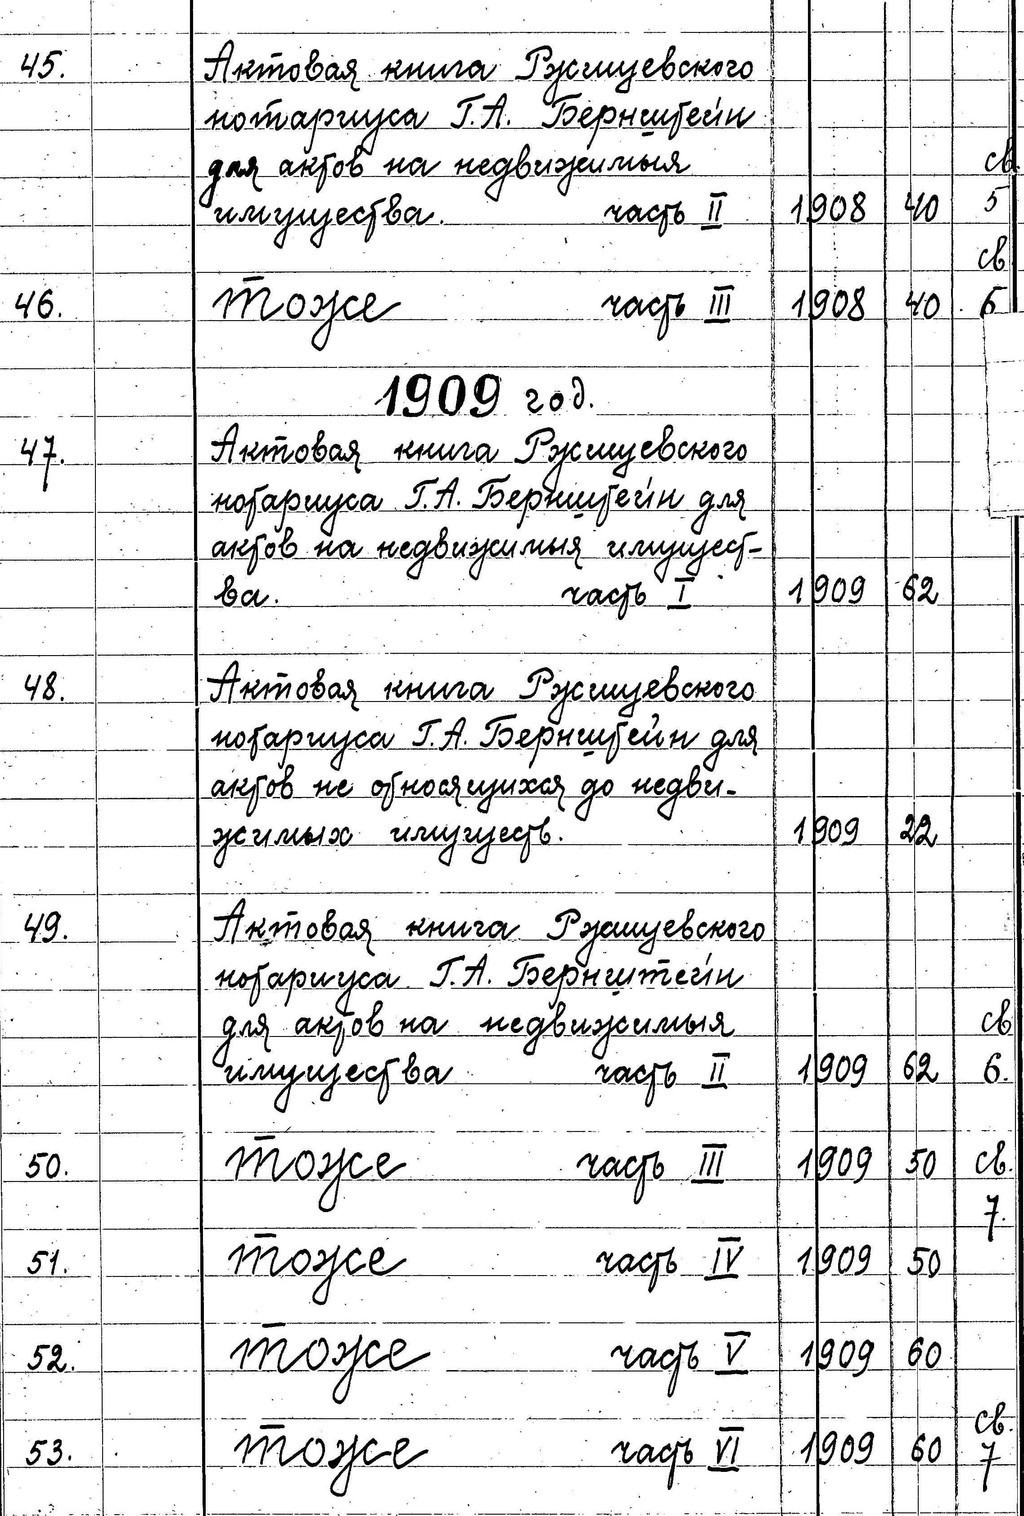 45. Актовая книга Ружищевского
нотариуса Г.А. Бернштейн
для актов на недвижимыя св
имущества. часть II 1908 40 5
св
46. тоже часть III 1908 40 6
1909 год.
47. Актовая книга Ружищевского
нотариуса Г.А. Бернштейн для
актов на недвижимыя имущест-
ва. часть I 1909 62
48. Актовая книга Ружищевского
нотариуса Г.А. Бернштейн для
актов не относящихся до недви-
жимых имуществ. 1909 22
49. Актовая книга Ружищевского
нотариуса Г.А. Бернштейн
для актов на недвижимыя св
имущества часть II 1909 62 6.
50. тоже часть III 1909 50 св.
7.
51. тоже часть IV 1909 50
52. тоже часть V 1909 60
св.
53. тоже часть VI 1909 60 7